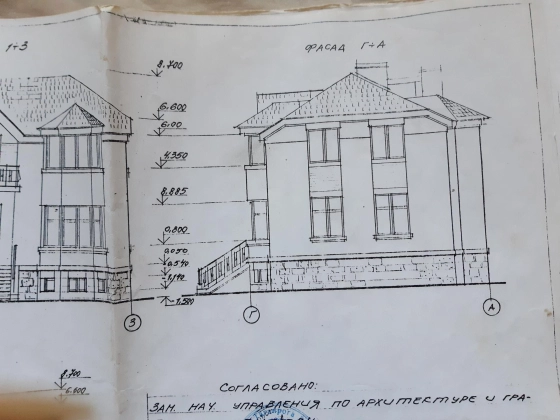 1÷3
ФАСАД Г÷А
8.700
6.600
6.00
4.350
0.800
0.050
-0.540
-1.140
-1.500
3
Г
А
8.700
6.600
СОГЛАСОВАНО:
ЗАМ. НАЧ. УПРАВЛЕНИЯ ПО АРХИТЕКТУРЕ И ГРА-